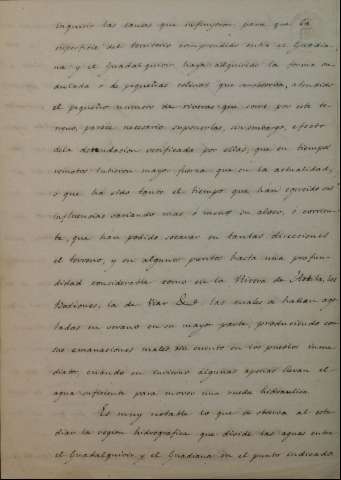 inquirir las causas que influyeron para que la
superficie del territorio comprendido entre el Guadia-
na y el Guadalquivir haya adquirido la forma on-
dulada o de pequeñas colinas que conserva, atendido
el pequeño numero de riveras que corre por este te-
rreno, parece necesario suponerlas, sin embargo, efecto
de la denudacion verificada por ellas, que en tiempos
remotos tubieron mayor fuerza que en la actualidad,
o que ha sido tanto el tiempo que han egercido sus
influencias variando mas ó menos su alveo, ó corrien-
te, que han podido socavar en tantas direcciones
el terreno, y en algunos puntos hasta una profun-
didad considerable como en la Rivera de Huelva, los
la de Viar &ª las cuales se hallan ago-
tadas en verano en su mayor parte, produciendo con
sus emanaciones males sin cuento en los pueblos inme-
diatos, cuando en invierno algunas apenas llevan el
agua suficiente para mover una rueda hidraulica.
Es muy notable lo que se observa al estu-
diar la region hidrografica que divide las aguas entre
el Guadalquivir y el Guadiana en el punto indicado